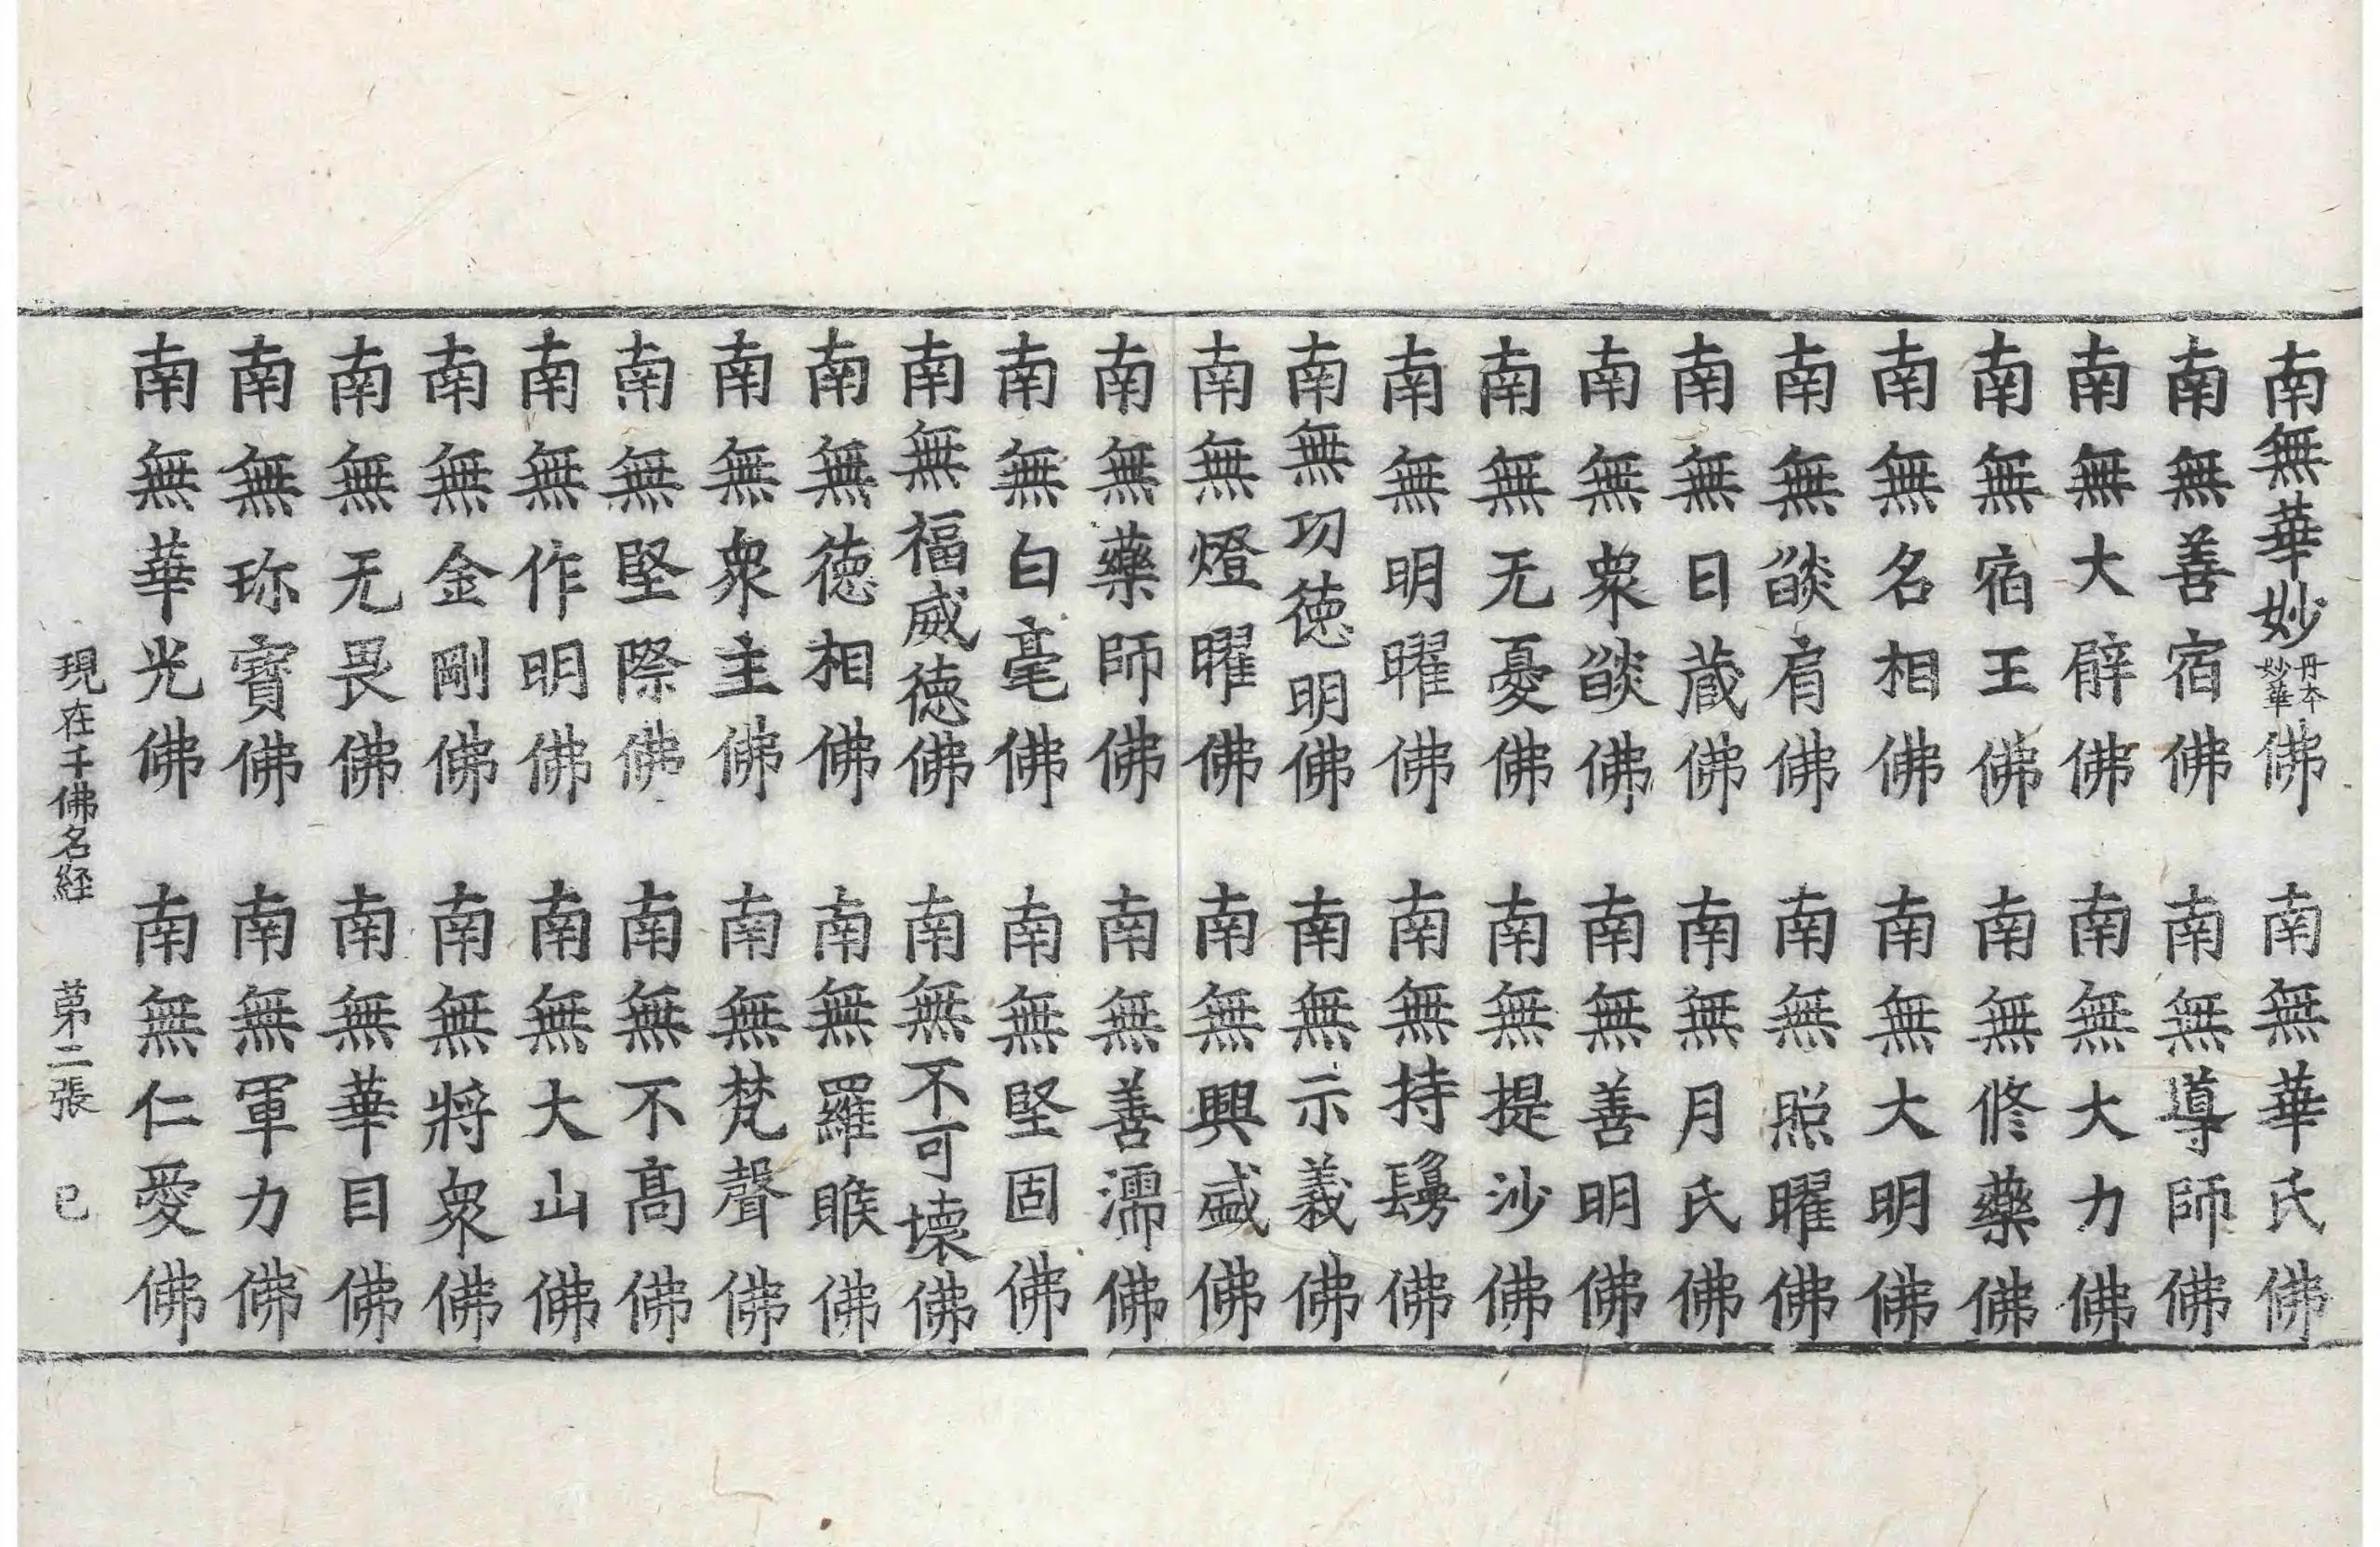 南無華妙丹本妙華佛 南無華氏佛
南無善宿佛 南無導師佛
南無大臂佛 南無大力佛
南無宿王佛 南無修藥佛
南無名相佛 南無大明佛
南無燄肩佛 南無照曜佛
南無日蔵佛 南無月氏佛
南無衆燄佛 南無善明佛
南無无憂佛 南無提沙佛
南無明曜佛 南無持鬘佛
南無功徳明佛 南無示義佛
南無燈曜佛 南無興盛佛
南無藥師佛 南無善濡佛
南無白毫佛 南無堅固佛
南無福威徳佛 南無不可壞佛
南無徳相佛 南無羅睺佛
南無衆主佛 南無梵聲佛
南無堅際佛 南無不高佛
南無作明佛 南無大山佛
南無金剛佛 南無將衆佛
南無无畏佛 南無華目佛
南無珎寶佛 南無軍力佛
南無華光佛 南無仁愛佛
現在千佛名経 第二張 已